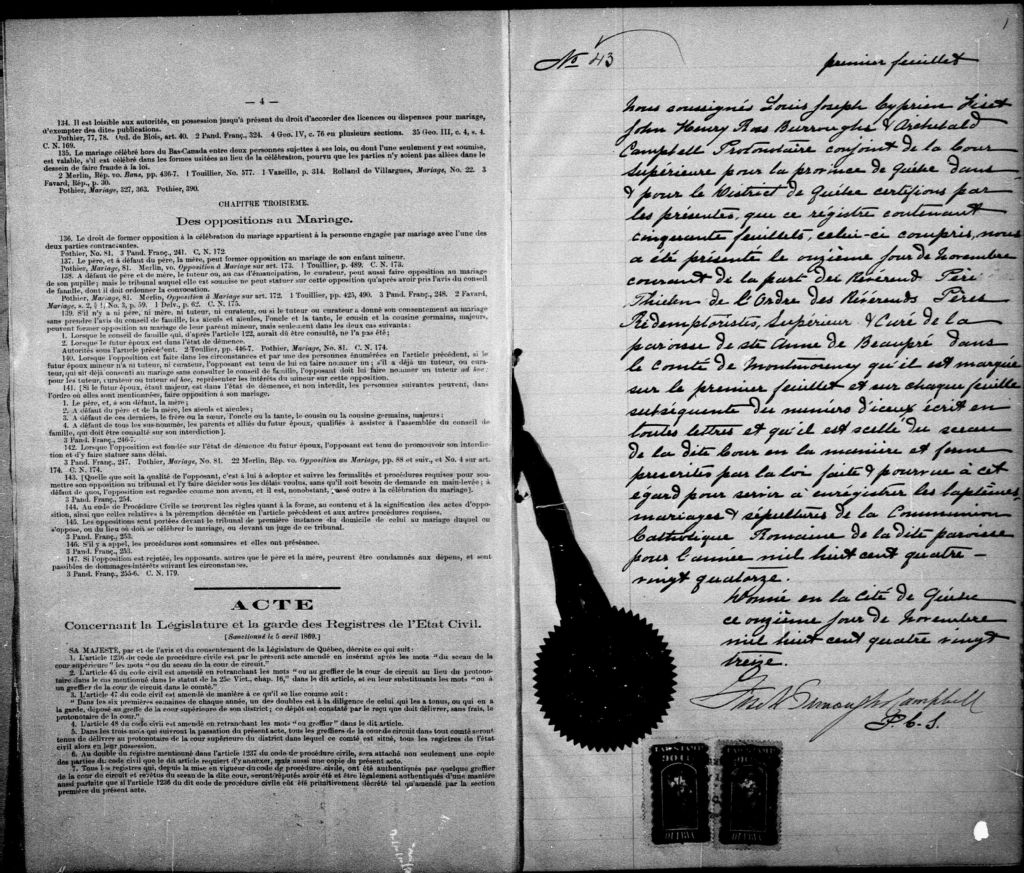 — 4 —
134. Il est loisible aux autorités, en possession jusqu'à présent du droit d'accorder des licences ou dispenses pour mariage,
d'exempter des dites publications.
Pothier, 77, 78. Ord. de Blois, art. 40. 2 Pand. Franç., 324. 4 Geo. IV, c. 76 en plusieurs sections. 35 Geo. III, c. 4, s. 4.
C. N. 169.
135. Le mariage célébré hors du Bas-Canada entre deux personnes sujettes à ses lois, ou dont l'une seulement y est soumise,
est valable, s'il est célébré dans les formes usitées au lieu de la célébration, pourvu que les parties n'y soient pas allées dans le
dessein de faire fraude à la loi.
2 Merlin, Rép. vo. Bans, pp. 436-7. 1 Touillier, No. 577. 1 Vazeille, p. 314. Rolland de Villargues, Mariage, No. 22. 3
Favard, Rép., p. 30.
Pothier, Mariage, 327, 363. Pothier, 390.
CHAPITRE TROISIEME.
Des oppositions au Mariage.
136. Le droit de former opposition à la célébration du mariage appartient à la personne engagée par mariage avec l'une des
deux parties contractantes.
Pothier, No. 81. 3 Pand. Franç., 241. C. N. 172.
137. Le père, et à défaut du père, la mère, peut former opposition au mariage de son enfant mineur.
Pothier, Mariage, 81. Merlin, vo. Opposition à Mariage sur art. 173. 1 Touillier, p. 489. C. N. 173.
138. A défaut de père et de mère, le tuteur ou, au cas d'émancipation, le curateur, peut aussi faire opposition au mariage
de son pupille; mais le tribunal auquel elle est soumise ne peut statuer sur cette opposition qu'après avoir pris l'avis du conseil
de famille, dont il doit ordonner la convocation.
Pothier, Mariage, 81. Merlin, Opposition à Mariage sur art. 172. 1 Touillier, pp. 425, 490. 3 Pand. Franç., 248. 2 Favard,
Mariage, s. 2, § 1, No. 3, p. 59. 1 Delv., p. 62. C. N. 175.
139. S'il n'y a ni père, ni mère, ni tuteur, ni curateur, ou si le tuteur ou curateur a donné son consentement au mariage
sans prendre l'avis du conseil de famille, les aïeuls et aïeules, l'oncle et la tante, le cousin et la cousine germains, majeurs,
peuvent former opposition au mariage de leur parent mineur, mais seulement dans les deux cas suivants:
1. Lorsque le conseil de famille qui, d'après l'article 122, aurait dû être consulté, ne l'a pas été;
2. Lorsque le futur époux est dans l'état de démence.
Autorités sous l'article précédent. 2 Touillier, pp. 446-7. Pothier, Mariage, No. 81. C. N. 174.
140. Lorsque l'opposition est faite dans les circonstances et par une des personnes énumérées en l'article précédent, si le
futur époux mineur n'a ni tuteur, ni curateur, l'opposant est tenu de lui en faire nommer un; s'il a déjà un tuteur, ou cura-
teur, qui ait déjà consenti au mariage sans consulter le conseil de famille, l'opposant doit lui faire nommer un tuteur ad hoc:
pour les tuteur, curateur ou tuteur ad hoc, représenter les intérêts du mineur sur cette opposition.
141. [Si le futur époux, étant majeur, est dans l'état de démence, et non interdit, les personnes suivantes peuvent, dans
l'ordre où elles sont mentionnées, faire opposition à son mariage.
1. Le père, et, à son défaut, la mère;
2. A défaut du père et de la mère, les aïeuls et aïeules;
3. A défaut de ces derniers, le frère ou la sœur, l'oncle ou la tante, le cousin ou la cousine germains, majeurs:
4. A défaut de tous les sus-nommés, les parents et alliés du futur époux, qualifiés à assister à l'assemblée du conseil de
famille, qui doit être consulté sur son interdiction].
3 Pand. Franç., 246-7.
142. Lorsque l'opposition est fondée sur l'état de démence du futur époux, l'opposant est tenu de promouvoir son interdic-
tion et d'y faire statuer sans délai.
3 Pand. Franç., 247. Pothier, Mariage, No. 81. 22 Merlin, Rép. vo. Opposition au Mariage, pp. 88 et suiv., et No. 4 sur art.
174. C. N. 174.
143. [Quelle que soit la qualité de l'opposant, c'est à lui à adopter et suivre les formalités et procédures requises pour sou-
mettre son opposition au tribunal et l'y faire décider sous les délais voulus, sans qu'il soit besoin de demande en main-levée; à
défaut de quoi, l'opposition est regardée comme non avenu, et il est, nonobstant, passé outre à la célébration du mariage].
3 Pand. Franç., 254.
144. Au code de Procédure Civile se trouvent les règles quant à la forme, au contenu et à la signification des actes d'oppo-
sition, ainsi que celles relatives à la péremption décrétée en l'article précédent et aux autres procédures requises.
145. Les oppositions sont portées devant le tribunal de première instance du domicile de celui au mariage duquel on
s'oppose, ou du lieu où doit se célébrer le mariage, ou devant un juge de ce tribunal.
3 Pand. Franç., 253.
146. S'il y a appel, les procédures sont sommaires et elles ont préséance.
3 Pand. Franç., 253.
147. Si l'opposition est rejetée, les opposants, autres que le père et la mère, peuvent être condamnés aux dépens, et sont
passibles de dommages-intérêts suivant les circonstances.
3 Pand. Franç., 255-6. C. N. 179.
ACTE
Concernant la Législature et la garde des Registres de l'Etat Civil.
[Sanctionné le 5 avril 1869.]
SA MAJESTÉ, par et de l'avis et du consentement de la Législature de Québec, décrète ce qui suit:
1. L'article 1236 du code de procédure civile est par le présent acte amendé en insérant après les mots "du sceau de la
cour supérieure" les mots "ou du sceau de la cour de circuit."
2. L'article 45 du code civil est amendé en retranchant les mots "ou au greffier de la cour de circuit au lieu du protono-
taire dans le cas mentionné dans le statut de la 25e Vict., chap. 16," dans le dit article, et en leur substituant les mots "ou à
un greffier de la cour de circuit dans le comté."
3. L'article 47 du code civil est amendé de manière à ce qu'il se lise comme suit:
"Dans les six premières semaines de chaque année, un des doubles est à la diligence de celui qui les a tenus, ou qui en a
la garde, déposé au greffe de la cour supérieure de son district; ce dépôt est constaté par le reçu que doit délivrer, sans frais, le
protonotaire de la cour."
4. L'article 48 du code civil est amendé en retranchant les mots "ou greffier" dans le dit article.
5. Dans les trois mois qui suivront la passation du présent acte, tous les greffiers de la cour de circuit dans tout comté seront
tenus de délivrer au protonotaire de la cour supérieure du district dans lequel ce comté est situé, tous les registres de l'état
civil alors en leur possession.
6. Au double du registre mentionné dans l'article 1237 du code de procédure civile, sera attaché non seulement une copie
des parties du code civil que le dit article requiert d'y annexer, mais aussi une copie du présent acte.
7. Tous les registres qui, depuis la mise en vigueur du code de procédure civile, ont été authentiqués par quelque greffier
de la cour de circuit et revêtus du sceau de la dite cour, seront réputés avoir été et être légalement authentiqués d'une manière
aussi parfaite que si l'article 1236 du dit code de procédure civile eût été primitivement décrété tel qu'amendé par la section
première du présent acte.
1
No 43
premier feuillet
Nous soussignés Louis Joseph Cyprien Fiset
John Henry Ross Burroughs & Archibald
Campbell Protonotaire conjoint de la Cour
Supérieure pour la province de Québec dans
& pour le District de Québec certifions par
les présentes, que ce régistre contenant
cinquante feuillets, celui-ci compris, nous
a été présenté le onzième jour de Novembre
courant de la part du Révérend Père
Thielen de l'Ordre des Révérends Pères
Rédemptoristes, Supérieur & Curé de la
paroisse de Ste Anne de Beaupré dans
le Comté de Montmorency qu'il est marqué
sur le premier feuillet et sur chaque feuillet
subséquente du numéro d'iceux écrit en
toutes lettres et qu'il est scellé du sceau
de la dite Cour en la manière et forme
prescrites par la loi faite & pourvue à cet
egard pour servir à enrégistrer les baptêmes
mariages & sépultures de la Communion
Catholique Romaine de la dite paroisse
pour l'année mil huit cent quatre-
vingt quatorze.
Donné en la Cité de Québec
ce onzième jour de Novembre
mil huit cent quatre vingt
treize.
Fiset Burroughs Campbell
P. C. S.